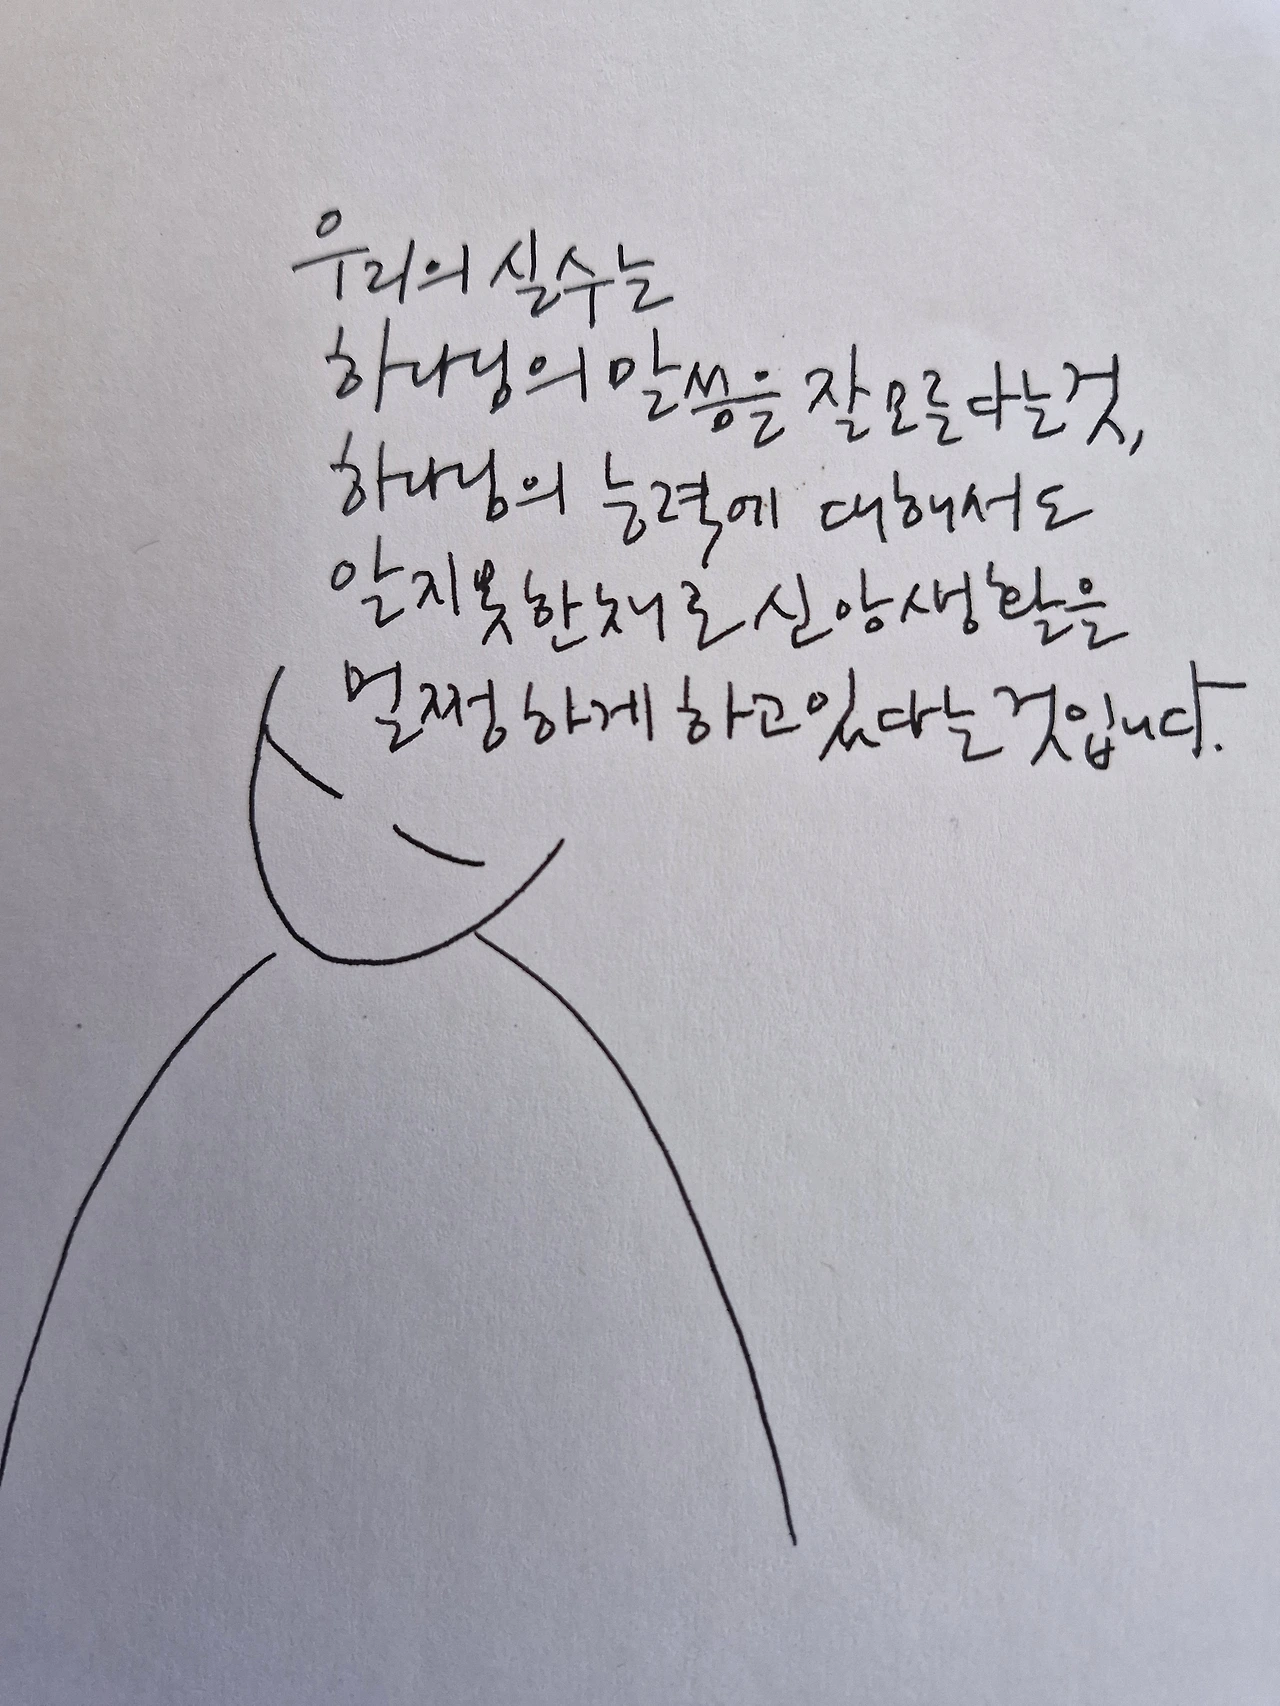 우리의 실수는
하나님의 말씀을 잘 모른다는것,
하나님의 능력에 대해서도
알지못한채로 신앙생활을
멀쩡하게 하고있다는 것입니다.